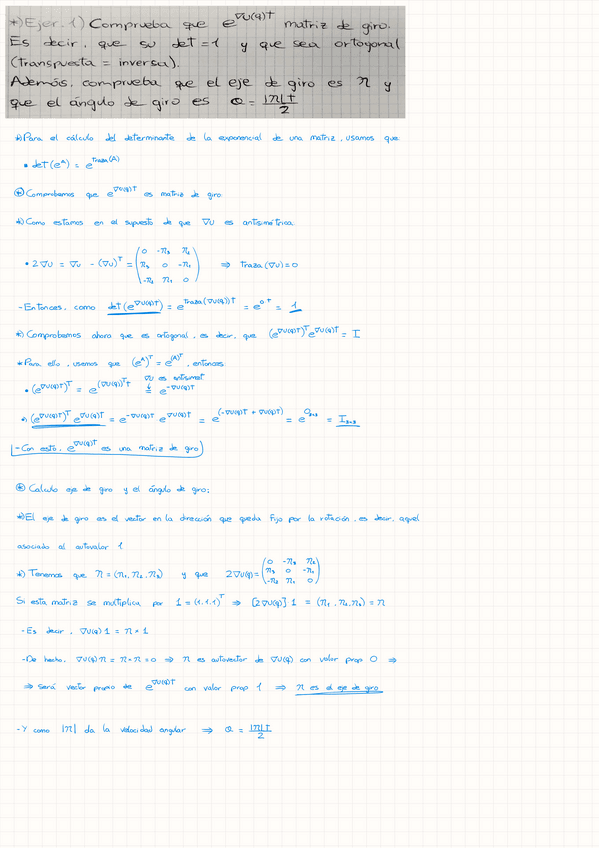 *) Ejer. 1) Comprueba que e^{∇U(q)T} matriz de giro.
Es decir, que su det = 1 y que sea ortogonal
(transpuesta = inversa).
Además, comprueba que el eje de giro es η y
que el ángulo de giro es θ = |η|T/2
*) Para el cálculo del determinante de la exponencial de una matriz, usamos que
• det(e^A) = e^{traza(A)}
⊛ Comprobamos que e^{∇U(q)T} es matriz de giro
*) Como estamos en el supuesto de que ∇U es antisimétrica
• 2∇U = ∇U - (∇U)^T = (0 -η₃ η₂ / η₃ 0 -η₁ / -η₂ η₁ 0) ⇒ Traza(∇U) = 0
- Entonces, como det(e^{∇U(q)T}) = e^{Traza(∇U(q))T} = e^{0·T} = 1
*) Comprobamos ahora que es ortogonal, es decir, que (e^{∇U(q)T})^T e^{∇U(q)T} = I
* Para ello, usemos que (e^A)^T = e^{(A)^T}, entonces
∇U es antisimet
• (e^{∇U(q)T})^T = e^{(∇U(q))^T T} = e^{-∇U(q)T}
(e^{∇U(q)T})^T e^{∇U(q)T} = e^{-∇U(q)T} e^{∇U(q)T} = e^{(-∇U(q)T + ∇U(q)T)} = e^{0₃ₓ₃} = I₃ₓ₃
- Con esto, e^{∇U(q)T} es una matriz de giro
⊛ Calculo eje de giro y el ángulo de giro:
*) El eje de giro es el vector en la dirección que queda fijo por la rotación, es decir, aquel
asociado al autovalor 1
*) Tenemos que η = (η₁, η₂, η₃) y que 2∇U(q) = (0 -η₃ η₂ / η₃ 0 -η₁ / -η₂ η₁ 0)
Si esta matriz se multiplica por 1 = (1,1,1)^T ⇒ [2∇U(q)] 1 = (η₁, η₂, η₃) = η
- Es decir, ∇U(q) 1 = η × 1
- De hecho, ∇U(q) η = η × η = 0 ⇒ η es autovector de ∇U(q) con valor prop 0 ⇒
⇒ será vector propio de e^{∇U(q)T} con valor prop 1 ⇒ η es el eje de giro
- Y como |η| da la velocidad angular ⇒ θ = |η|T/2